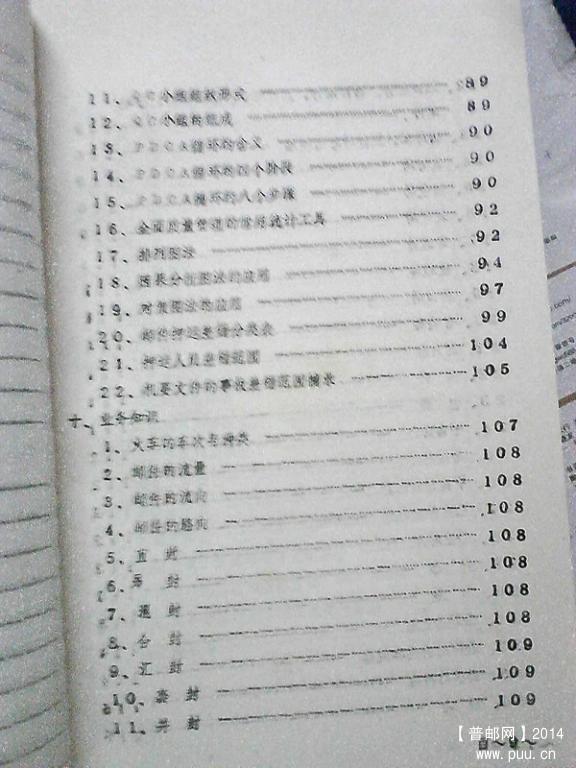 11、QC小组组织形式 89
12、QC小组的组成 89
13、PDCA循环的含义 90
14、PDCA循环的四个阶段 90
15、PDCA循环的八个步骤 90
16、全面质量管理的常用统计工具 92
17、排列图法 92
18、因果分析图法的应用 94
19、对策图法的应用 97
20、邮件押运差错分类表 99
21、押运人员差错范围 104
22、机要文件的事故差错范围摘录 105
十、业务知识
1、火车的车次与种类 107
2、邮件的流量 108
3、邮件的流向 108
4、邮件的路向 108
5、直封 108
6、封 108
7、混封 108
8、合封 108
9、汇封 109
10、套封 109
11、共封 109
【普邮网】2014
www.puu.cn